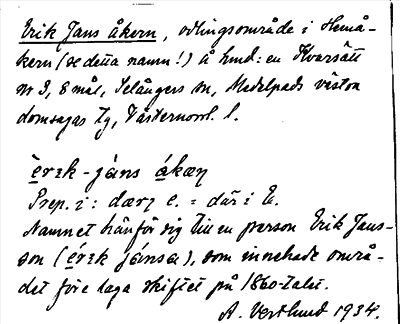 Erik Jans åkern, odlingsområde i Hemå-
kern (se detta namn!) å hmd: en Kvarsätt
nr 3, 8 mål, Selångers sn, Medelpads västra
domsagas tg, Västernorrl. l.
èrɪk-jàns ákæɳ
Prep. i: dærɪ e. = där i E.
Namnet hänför sig till en person Erik Jans-
son (érɪk jánsa), som innehade områ-
det före laga skiftet på 1860-talet.
A. Vestlund 1934.